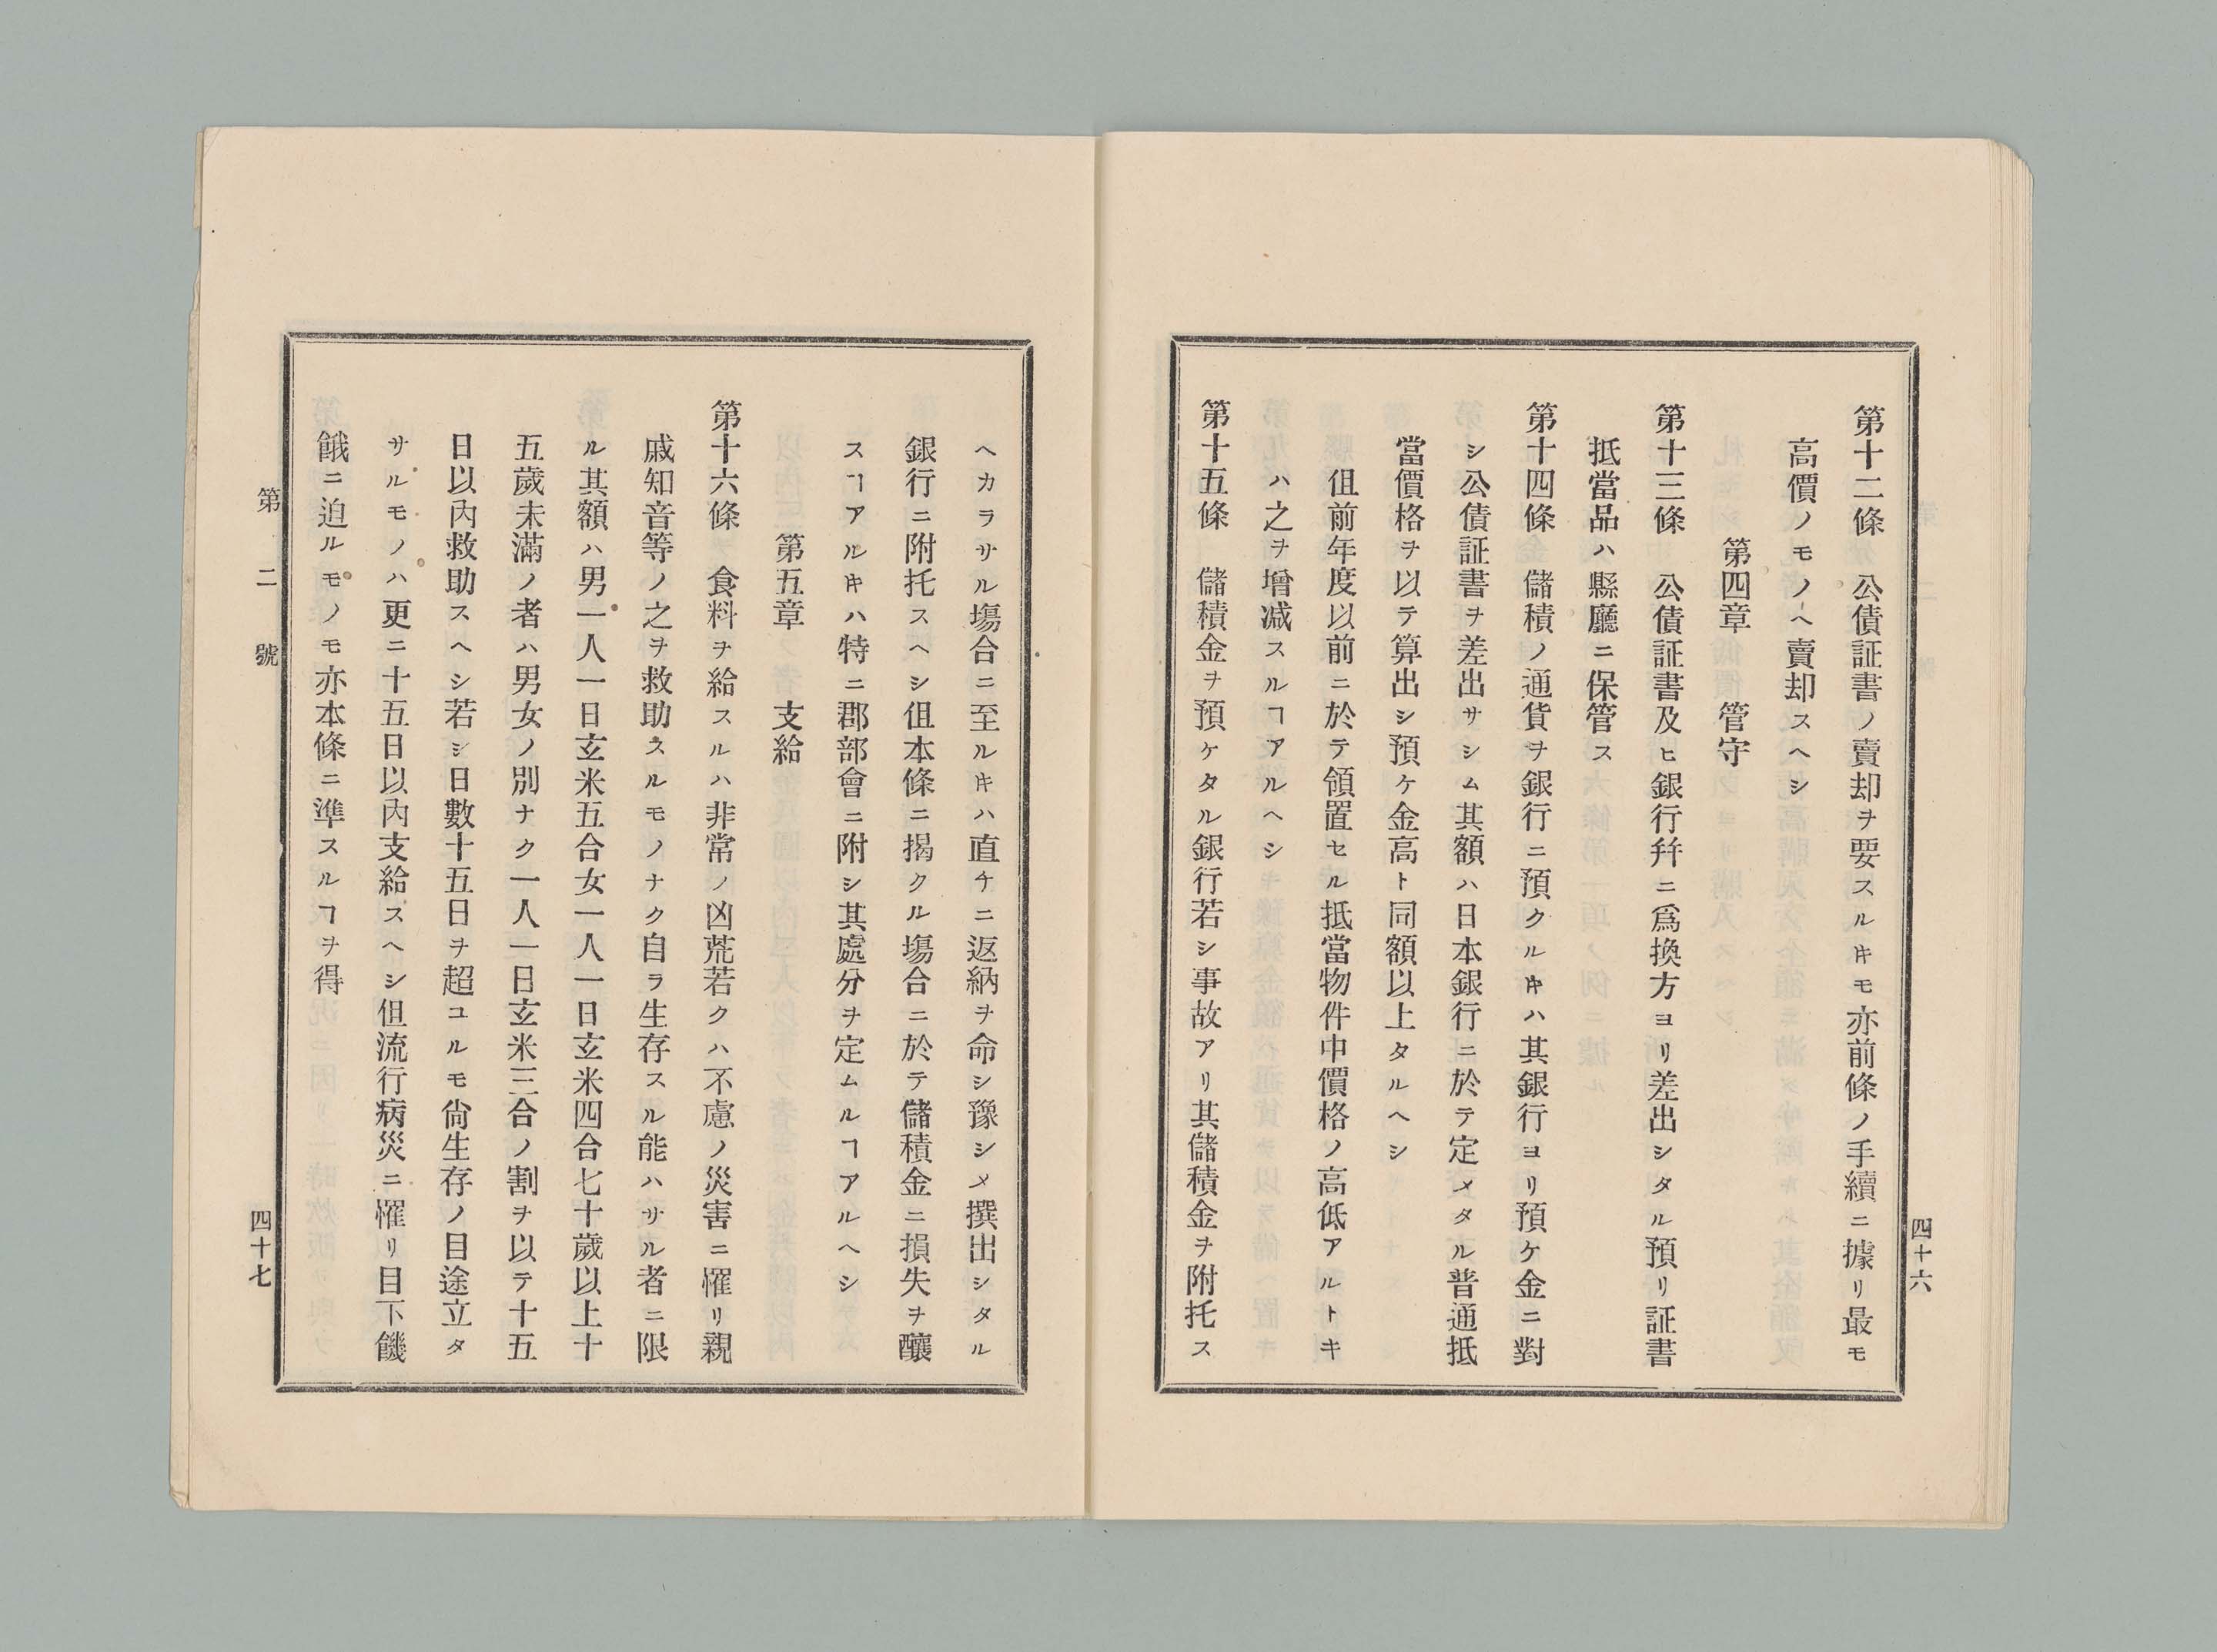 第十二條　公債証書ノ賣却ヲ要スルキモ亦前條ノ手續ニ據リ最モ
高價ノモノヘ賣却スヘシ
第四章　管守
第十三條　公債証書及ヒ銀行幷ニ爲換方ヨリ差出シタル預リ証書
抵當品ハ縣廳ニ保管ス
第十四條　儲積ノ通貨ヲ銀行ニ預クルキハ其銀行ヨリ預ケ金ニ對
シ公債証書ヲ差出サシム其額ハ日本銀行ニ於テ定メタル普通抵
當價格ヲ以テ算出シ預ケ金高ト同額以上タルヘシ
伹前年度以前ニ於テ領置セル抵當物件中價格ノ高低アルトキ
ハ之ヲ增减スルヿアルヘシ
第十五條　儲積金ヲ預ケタル銀行若シ事故アリ其儲積金ヲ附托ス
四十六
ヘカラサル塲合ニ至ルキハ直チニ返納ヲ命シ豫シメ撰出シタル
銀行ニ附托スヘシ伹本條ニ揭クル塲合ニ於テ儲積金ニ損失ヲ釀
スヿアルキハ特ニ郡部會ニ附シ其處分ヲ定ムルヿアルヘシ
第五章　支給
第十六條　食料ヲ給スルハ非常ノ凶荒若クハ不慮ノ災害ニ罹リ親
戚知音等ノ之ヲ救助スルモノナク自ラ生存スル能ハサル者ニ限
ル其額ハ男一人一日玄米五合女一人一日玄米四合七十歲以上十
五歲未滿ノ者ハ男女ノ別ナク一人一日玄米三合ノ割ヲ以テ十五
日以內救助スヘシ若シ日數十五日ヲ超コルモ尙生存ノ目途立タ
サルモノハ更ニ十五日以內支給スヘシ但流行病災ニ罹リ目下饑
餓ニ迫ルモノモ亦本條ニ準スルヿヲ得
第二號
四十七